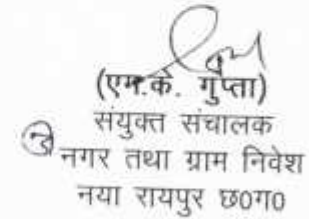 (एम.के. गुप्ता)
संयुक्त संचालक
नगर तथा ग्राम निवेश
नया रायपुर छ0ग0